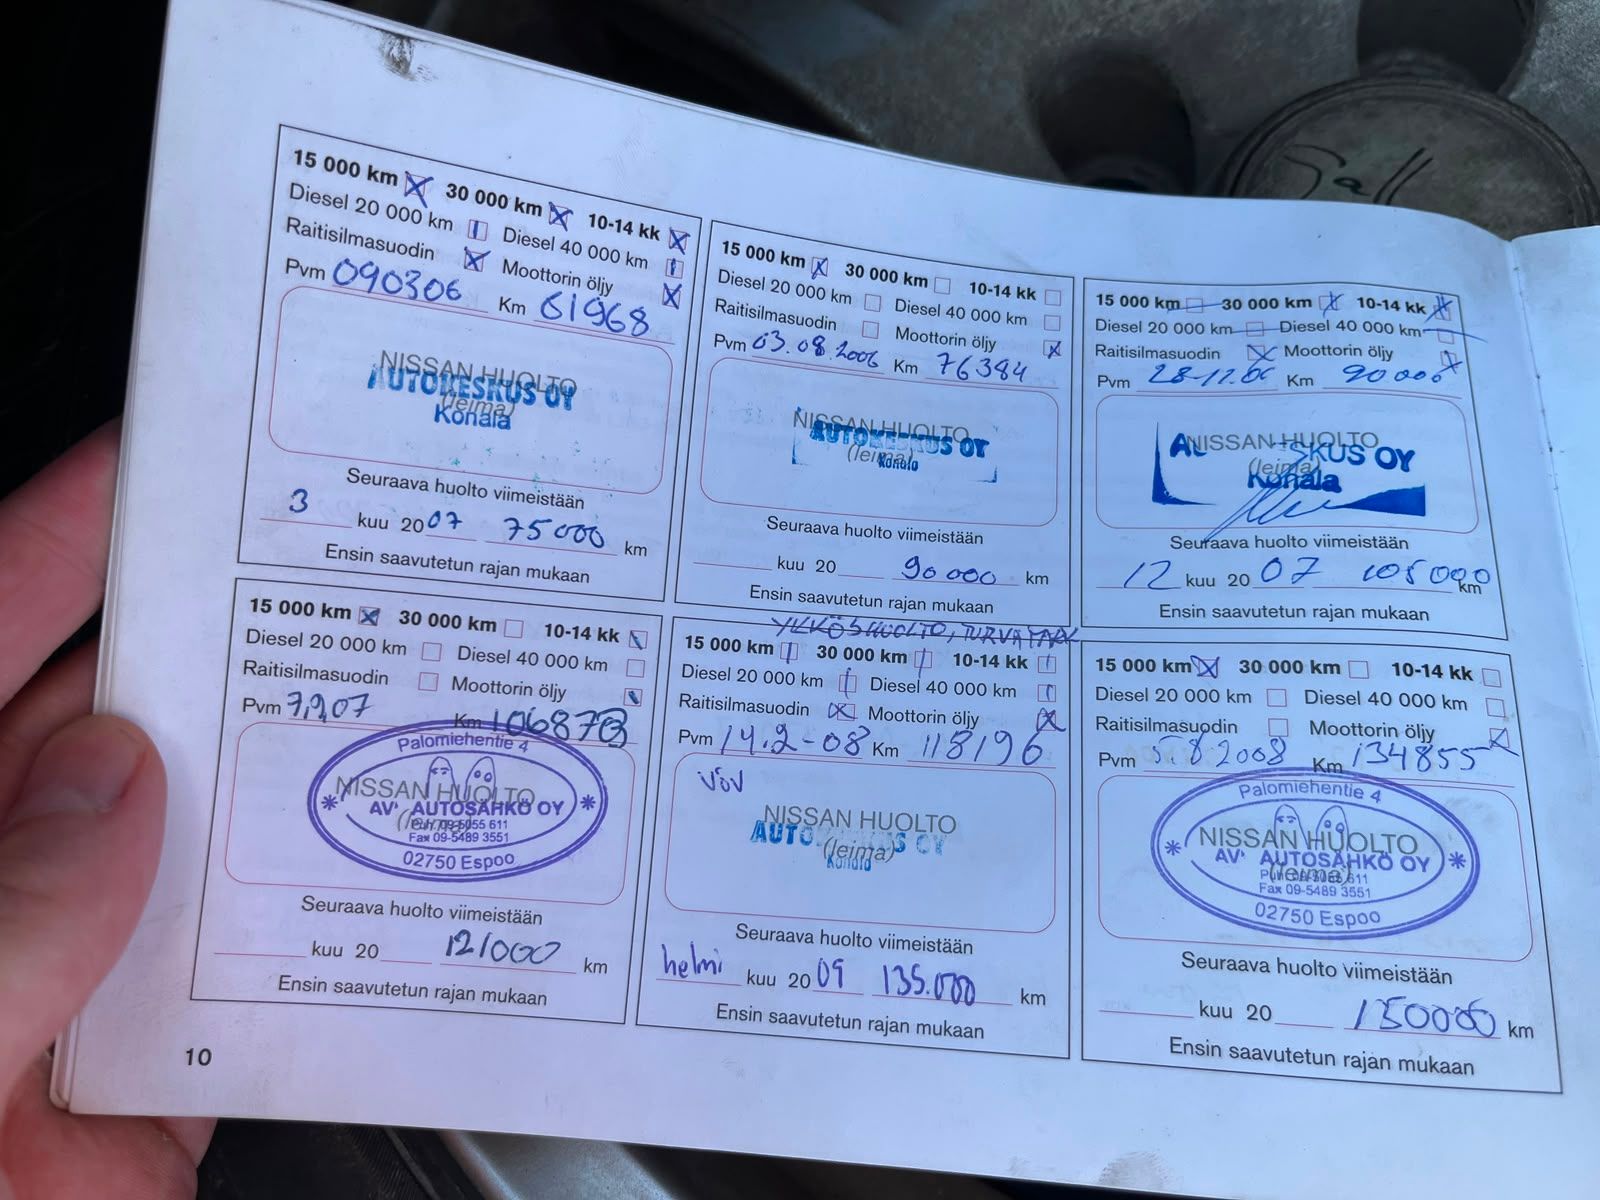 15 000 km 30 000 km 10-14 kk
Diesel 20 000 km Diesel 40 000 km
Raitisilmasuodin Moottorin öljy
Pvm 090306 Km 61968
NISSAN HUOLTO
AUTOKESKUS OY
(leima)
Konala
Seuraava huolto viimeistään
3 kuu 20 07 75000 km
Ensin saavutetun rajan mukaan
15 000 km 30 000 km 10-14 kk
Diesel 20 000 km Diesel 40 000 km
Raitisilmasuodin Moottorin öljy
Pvm 03.08.2006 Km 76384
NISSAN HUOLTO
AUTOKESKUS OY
(leima)
Konala
Seuraava huolto viimeistään
kuu 20 90000 km
Ensin saavutetun rajan mukaan
15 000 km 30 000 km 10-14 kk
Diesel 20 000 km Diesel 40 000 km
Raitisilmasuodin Moottorin öljy
Pvm 28-12.06 Km 90000
NISSAN HUOLTO
AU SKUS OY
(leima)
Konala
Seuraava huolto viimeistään
12 kuu 20 07 105000 km
Ensin saavutetun rajan mukaan
15 000 km 30 000 km 10-14 kk
Diesel 20 000 km Diesel 40 000 km
Raitisilmasuodin Moottorin öljy
Pvm 7,9,07 Km 106873
Palomiehentie 4
NISSAN HUOLTO
AV' AUTOSÄHKÖ OY
(leima)
Puh 09-5055 611
Fax 09-5489 3551
02750 Espoo
Seuraava huolto viimeistään
kuu 20 121000 km
Ensin saavutetun rajan mukaan
YKKÖSHUOLTO, TURVATARK
15 000 km 30 000 km 10-14 kk
Diesel 20 000 km Diesel 40 000 km
Raitisilmasuodin Moottorin öljy
Pvm 14.2-08 Km 118196
VöV
NISSAN HUOLTO
AUTO S OY
(leima)
Konala
Seuraava huolto viimeistään
helmi kuu 20 09 135.000 km
Ensin saavutetun rajan mukaan
15 000 km 30 000 km 10-14 kk
Diesel 20 000 km Diesel 40 000 km
Raitisilmasuodin Moottorin öljy
Pvm 5.8.2008 Km 134855
Palomiehentie 4
NISSAN HUOLTO
AV' AUTOSÄHKÖ OY
(leima)
Fax 09-5489 3551
02750 Espoo
Seuraava huolto viimeistään
kuu 20 150000 km
Ensin saavutetun rajan mukaan
10